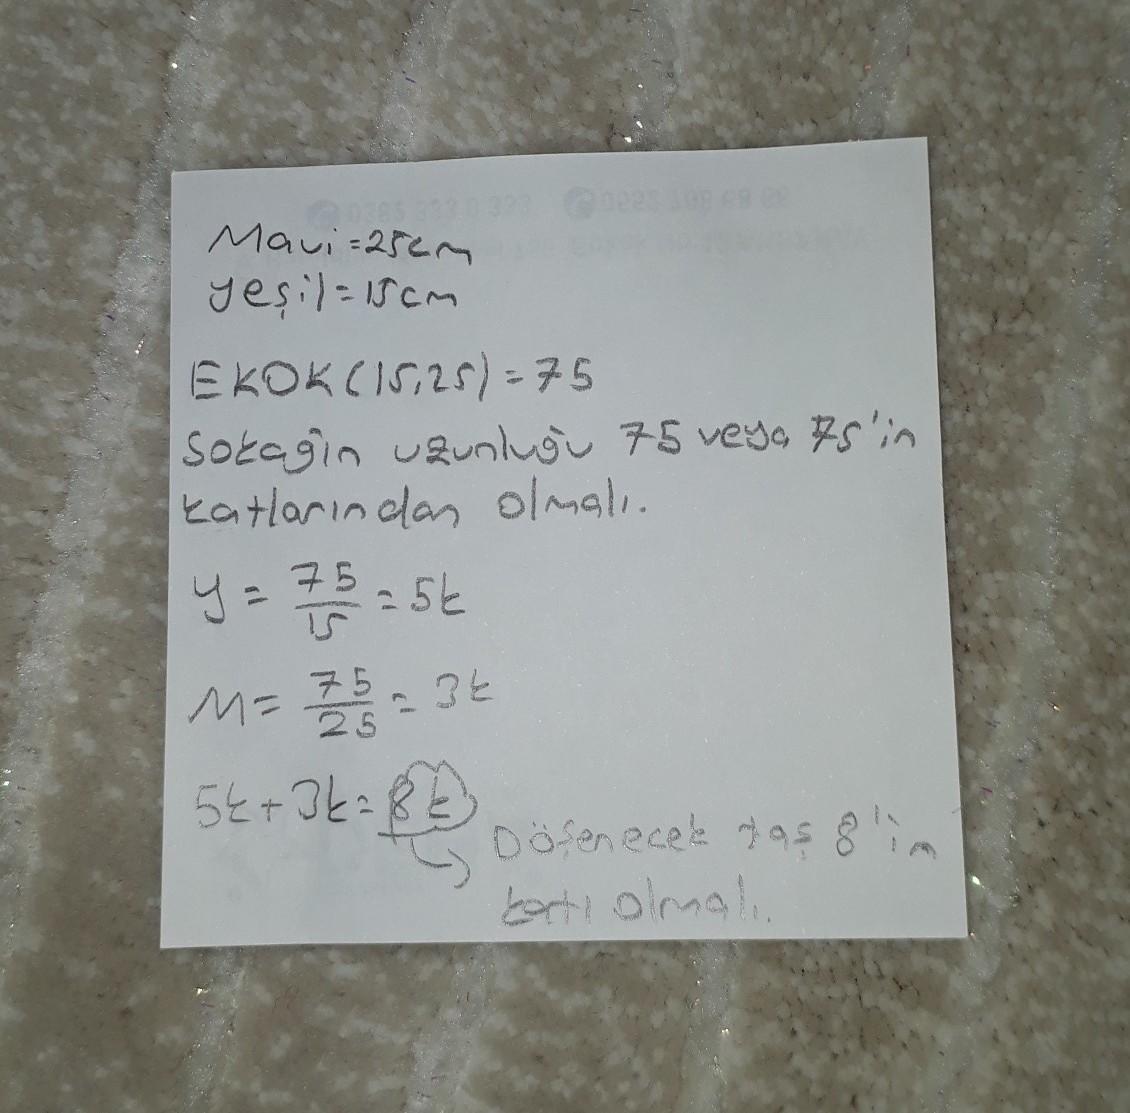 Mavi=25cm
yeşil=15cm
EKOK(15,25)=75
Sokağın uzunluğu 75 veya 75'in
katlarından olmalı.
y = 75/15 = 5k
M = 75/25 = 3k
5k+3k=8k
Döşenecek taş 8'in
katı olmalı.